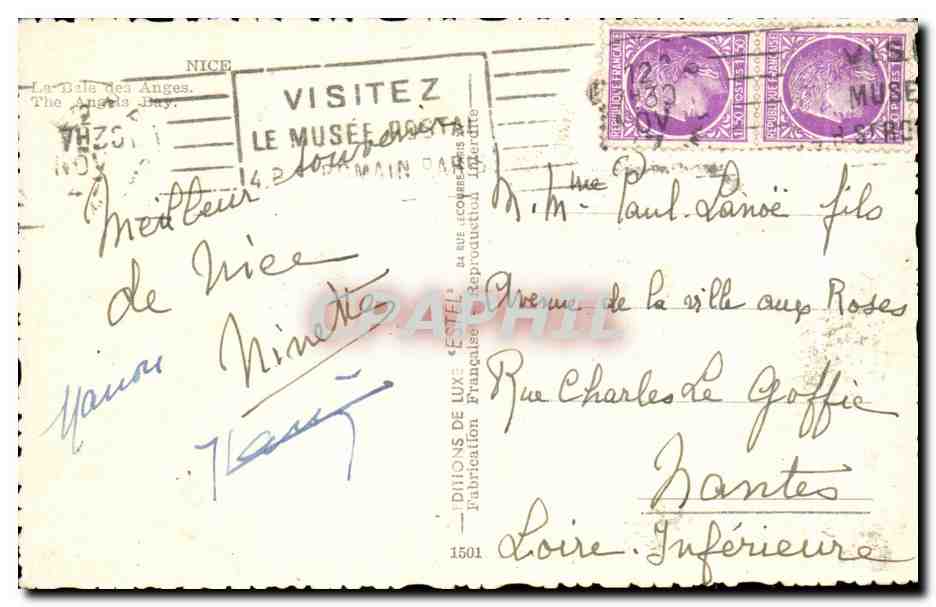 NICE
La Baie des Anges.
The Angels Bay.
VISITEZ
LE MUSÉE POSTAL
4. R ST ROMAIN PARIS
12
NOV
REPUBLIQUE FRANÇAISE
1F50 POSTES 1F50
REPUBLIQUE FRANÇAISE
VIS
MUSÉ
Meilleur souvenir
de Nice
Ninette
Manon
EDITIONS DE LUXE "ESTEL" 84 RUE LECOURBE PARIS
Fabrication Française Reproduction Interdite
1501
CPAPHIL
M. Mme Paul. Lanoë fils
Avenue de la ville aux Roses
Rue Charles Le Goffic
Nantes
Loire. Inférieure